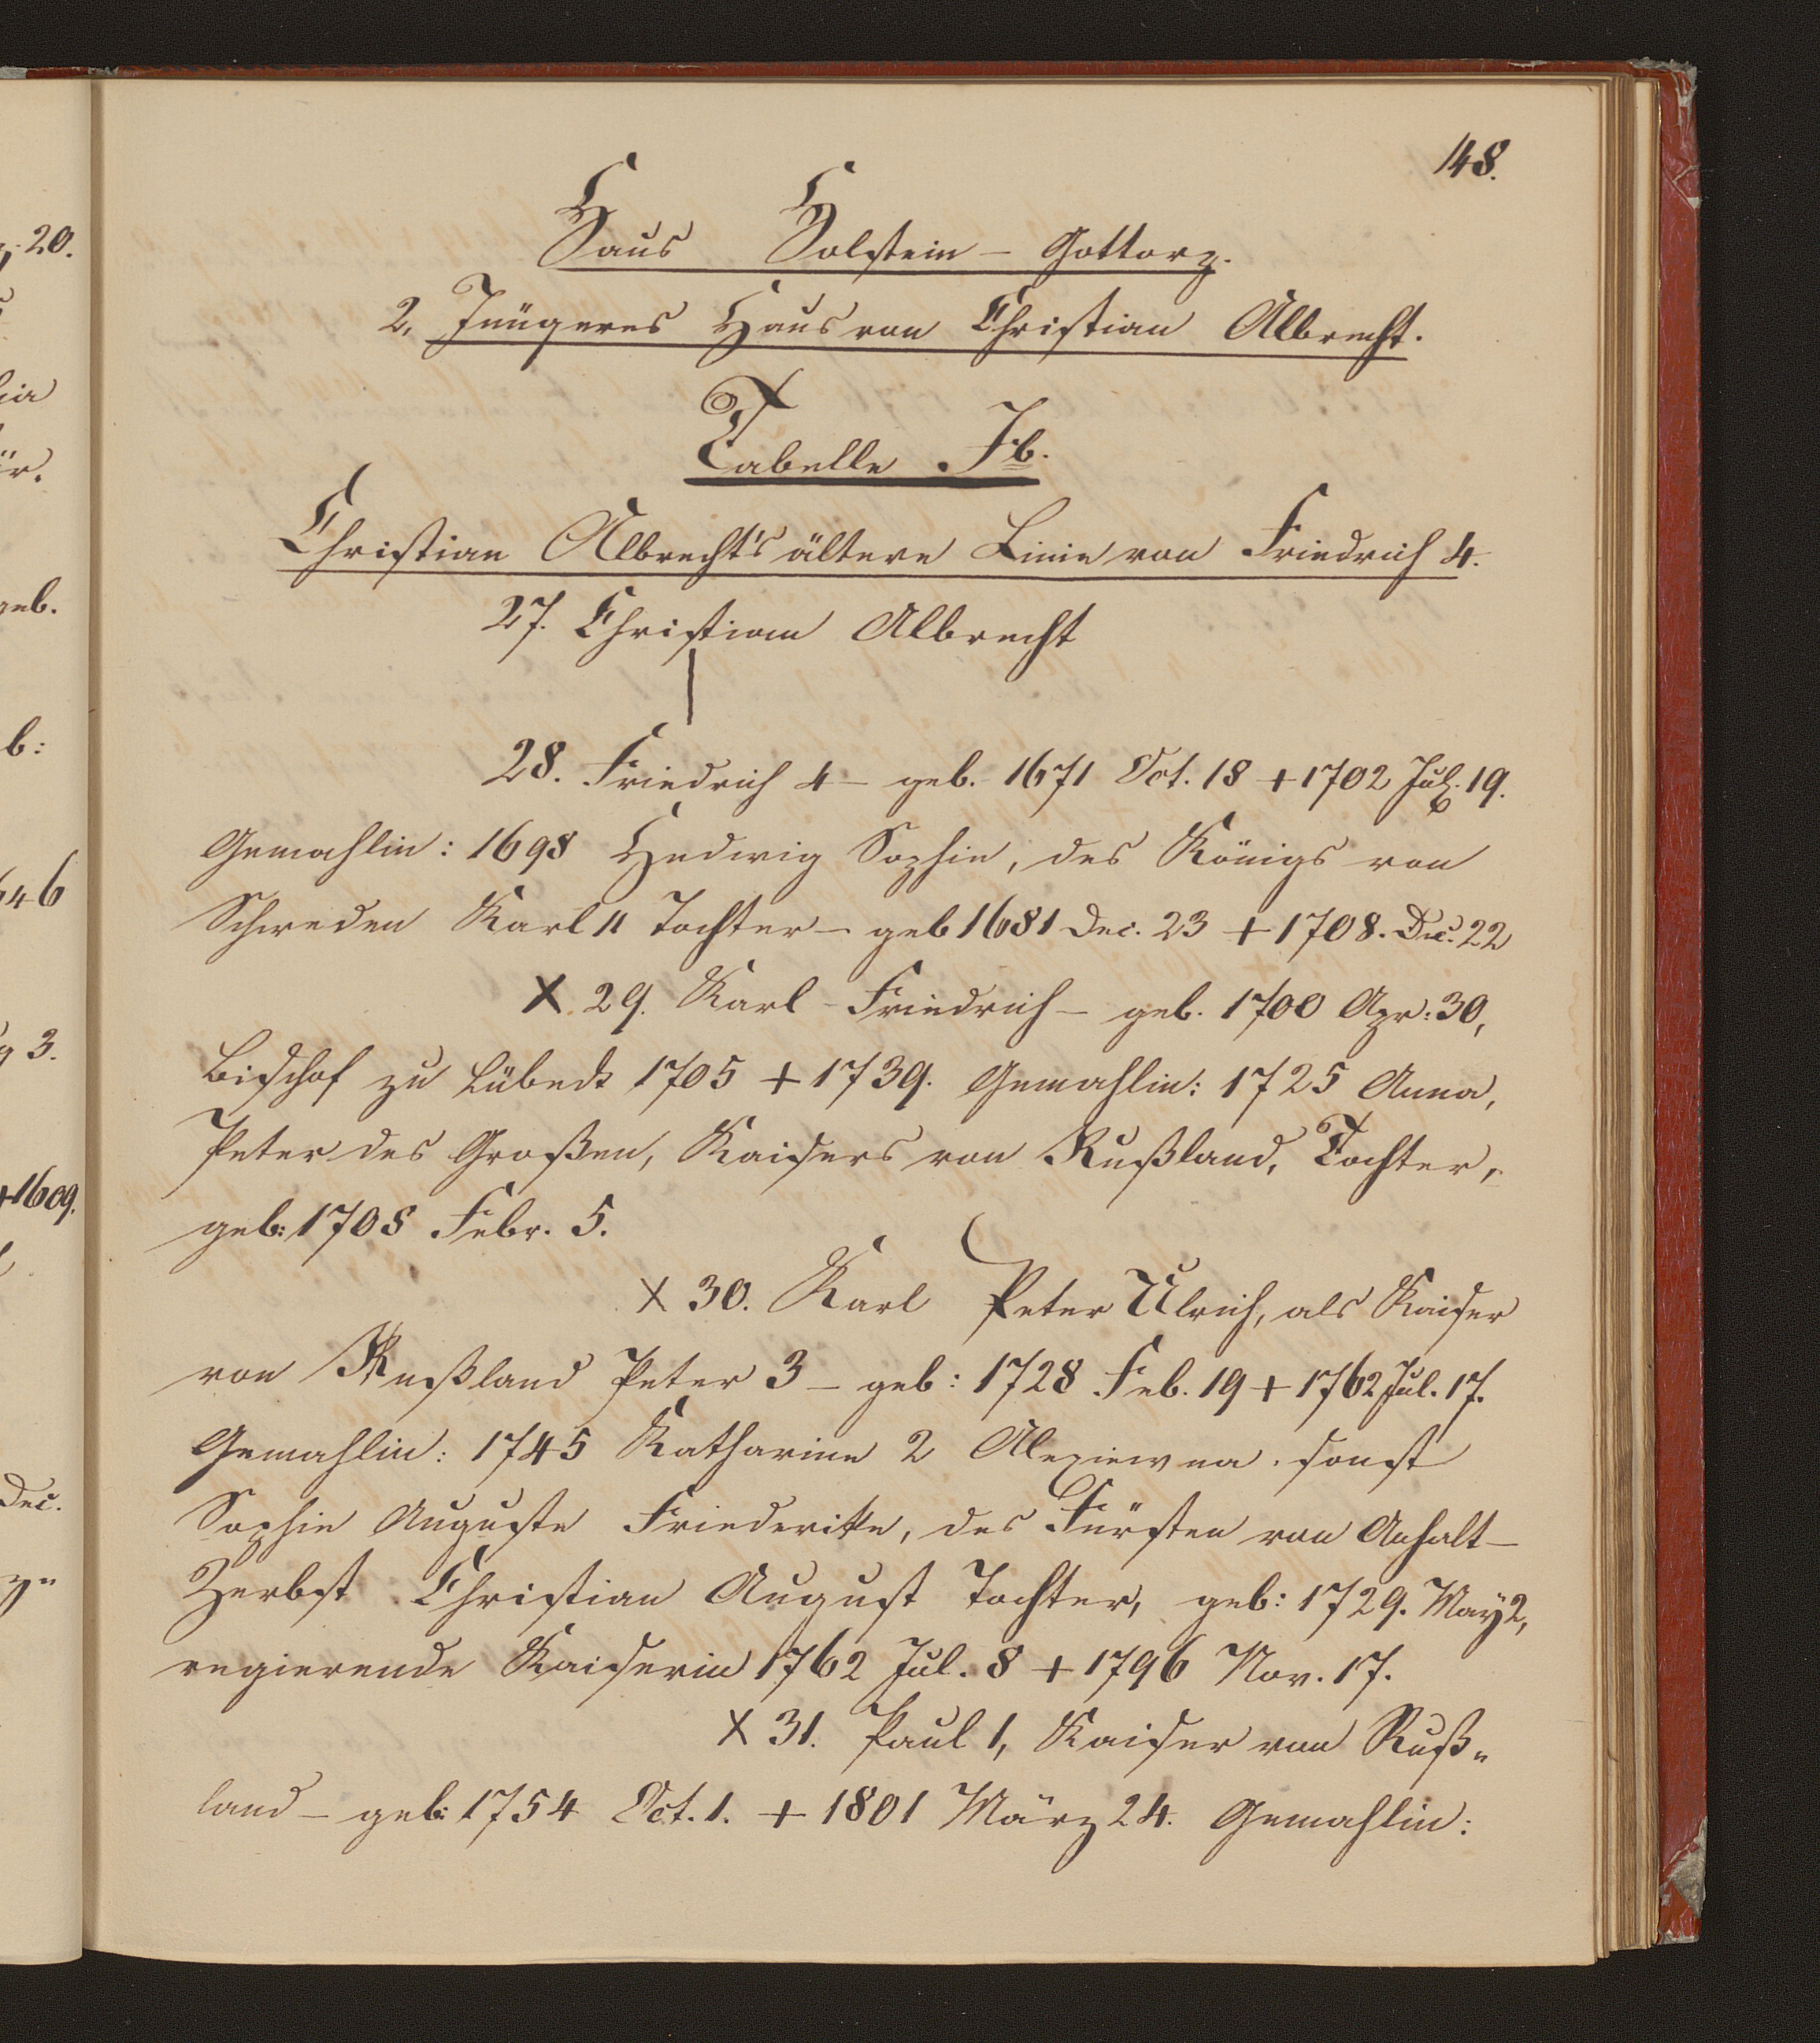 148.
Haus Holstein – Gottorp.
2. Jüngeres Haus von Christian Albrecht.
Tabelle Ib.
Christian Albrecht's ältere Linie von Friedrich 4.
27. Christian Albrecht
28. Friedrich 4 – geb. 1671 Oct. 18 + 1702 Jul. 19.
Gemahlin: 1698 Hedwig Sophie, des Königs von
Schweden Karl 11 Tochter – geb 1681 Dec. 23 + 1708. Dec. 22
X. 29. Karl Friedrich – geb. 1700 Apr: 30,
Bischof zu Lübeck 1705 + 1739. Gemahlin: 1725 Anna,
Peter des Großen, Kaisers von Rußland, Tochter,
geb: 1708 Febr. 5.
X 30. Karl Peter Ulrich, als Kaiser
von Rußland Peter 3 – geb: 1728 Feb. 19 + 1762 Jul. 17.
Gemahlin: 1745 Katharine 2 Alexiewna. sonst
Sophie Auguste Friederike, des Fürsten von Anhalt –
Zerbst Christian August Tochter, geb: 1729. May 2,
regierende Kaiserin 1762 Jul. 8 + 1796 Nov. 17.
X 31. Paul 1, Kaiser von Ruß-
land – geb: 1754 Oct. 1. + 1801 März 24. Gemahlin:
20.
ör.
geb.
b:
646
3.
+1609.
Dec.